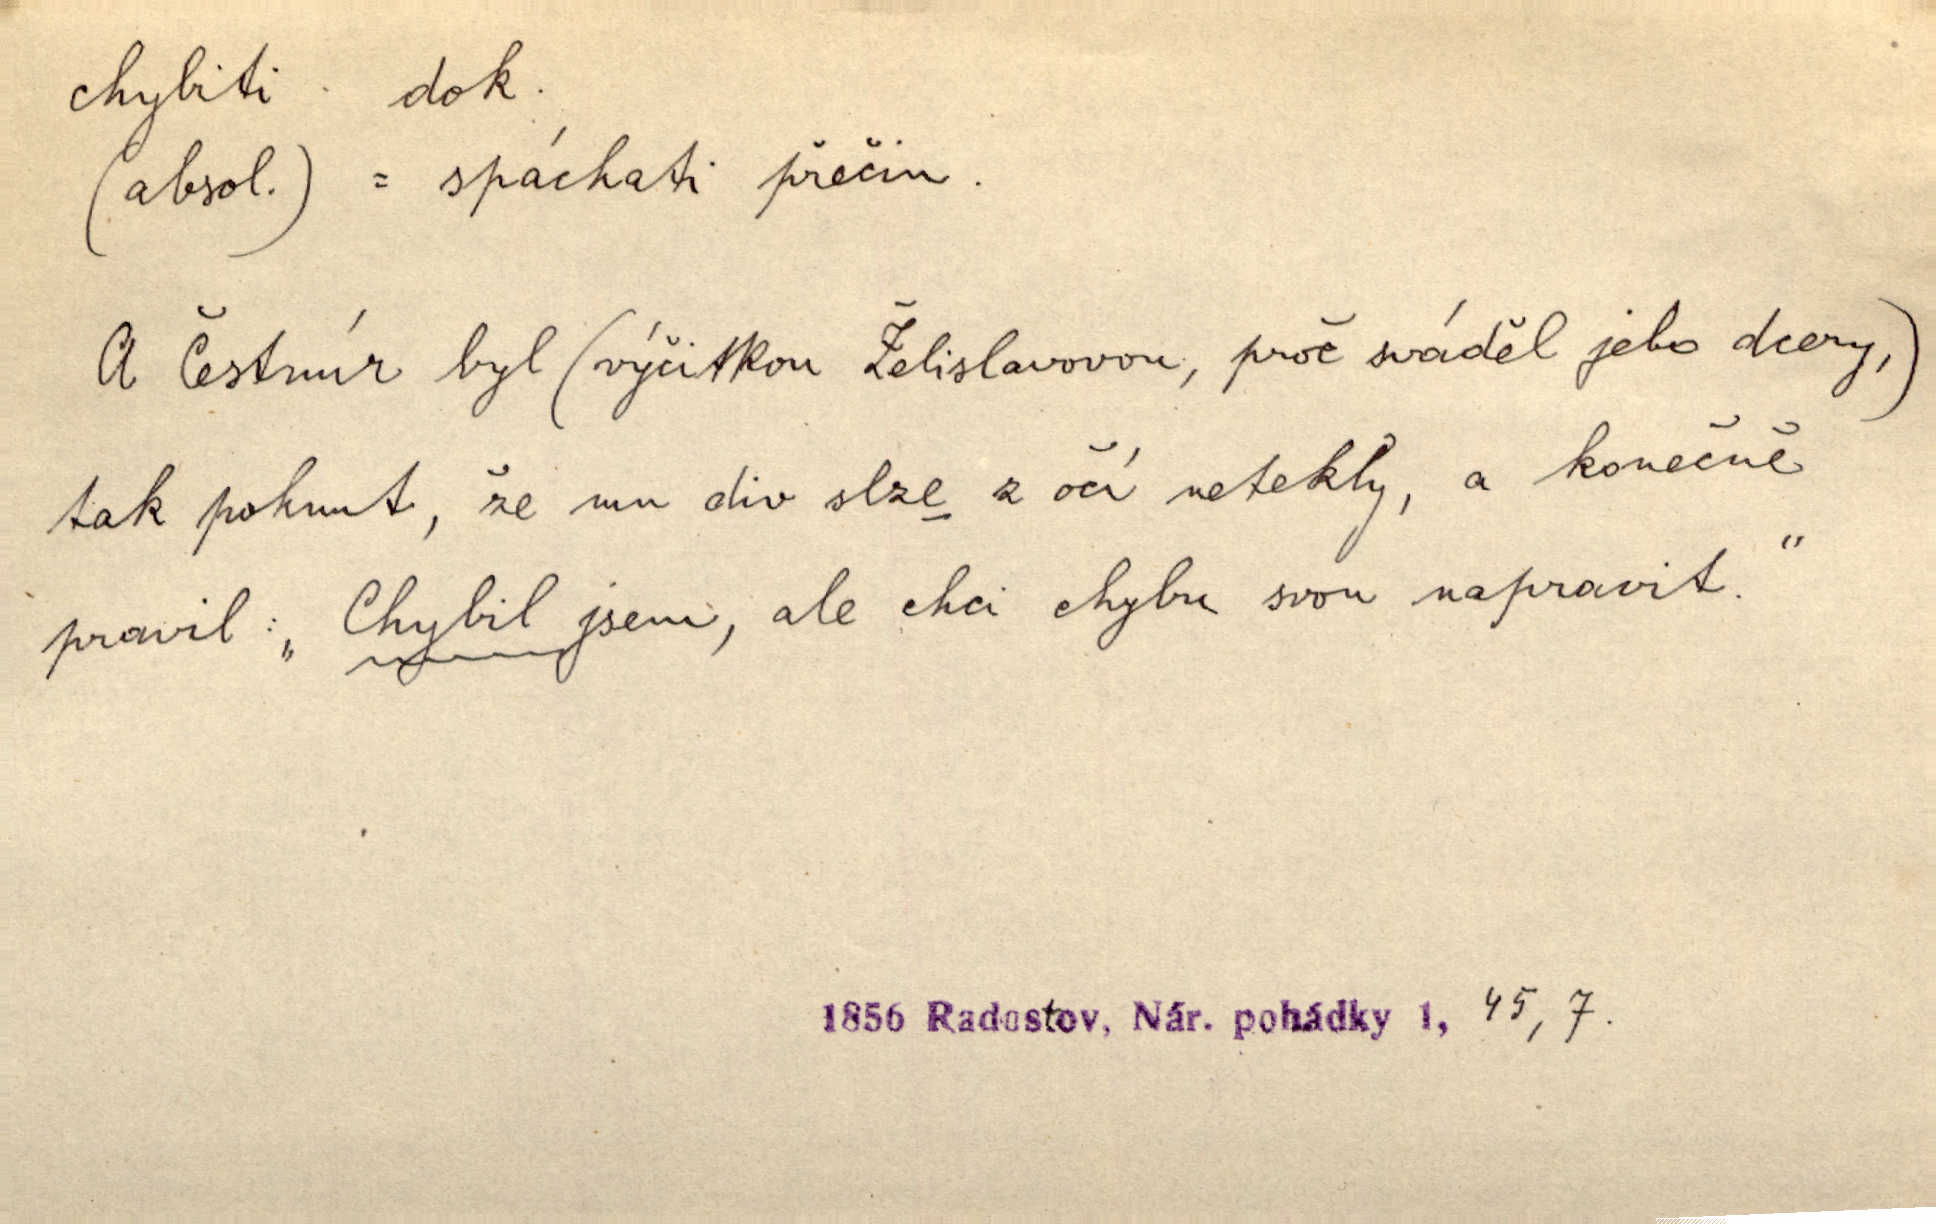 chybiti dok.
(absol.) = spáchati přečin.
A Čestmír byl (výčitkou Želislavovou, proč sváděl jeho dcery,)
tak pohnut, že mu div slze z očí netekly, a konečně
pravil: „Chybil jsem, ale chci chybu svou napravit."
1856 Radostov, Nár. pohádky 1, 45, 7.